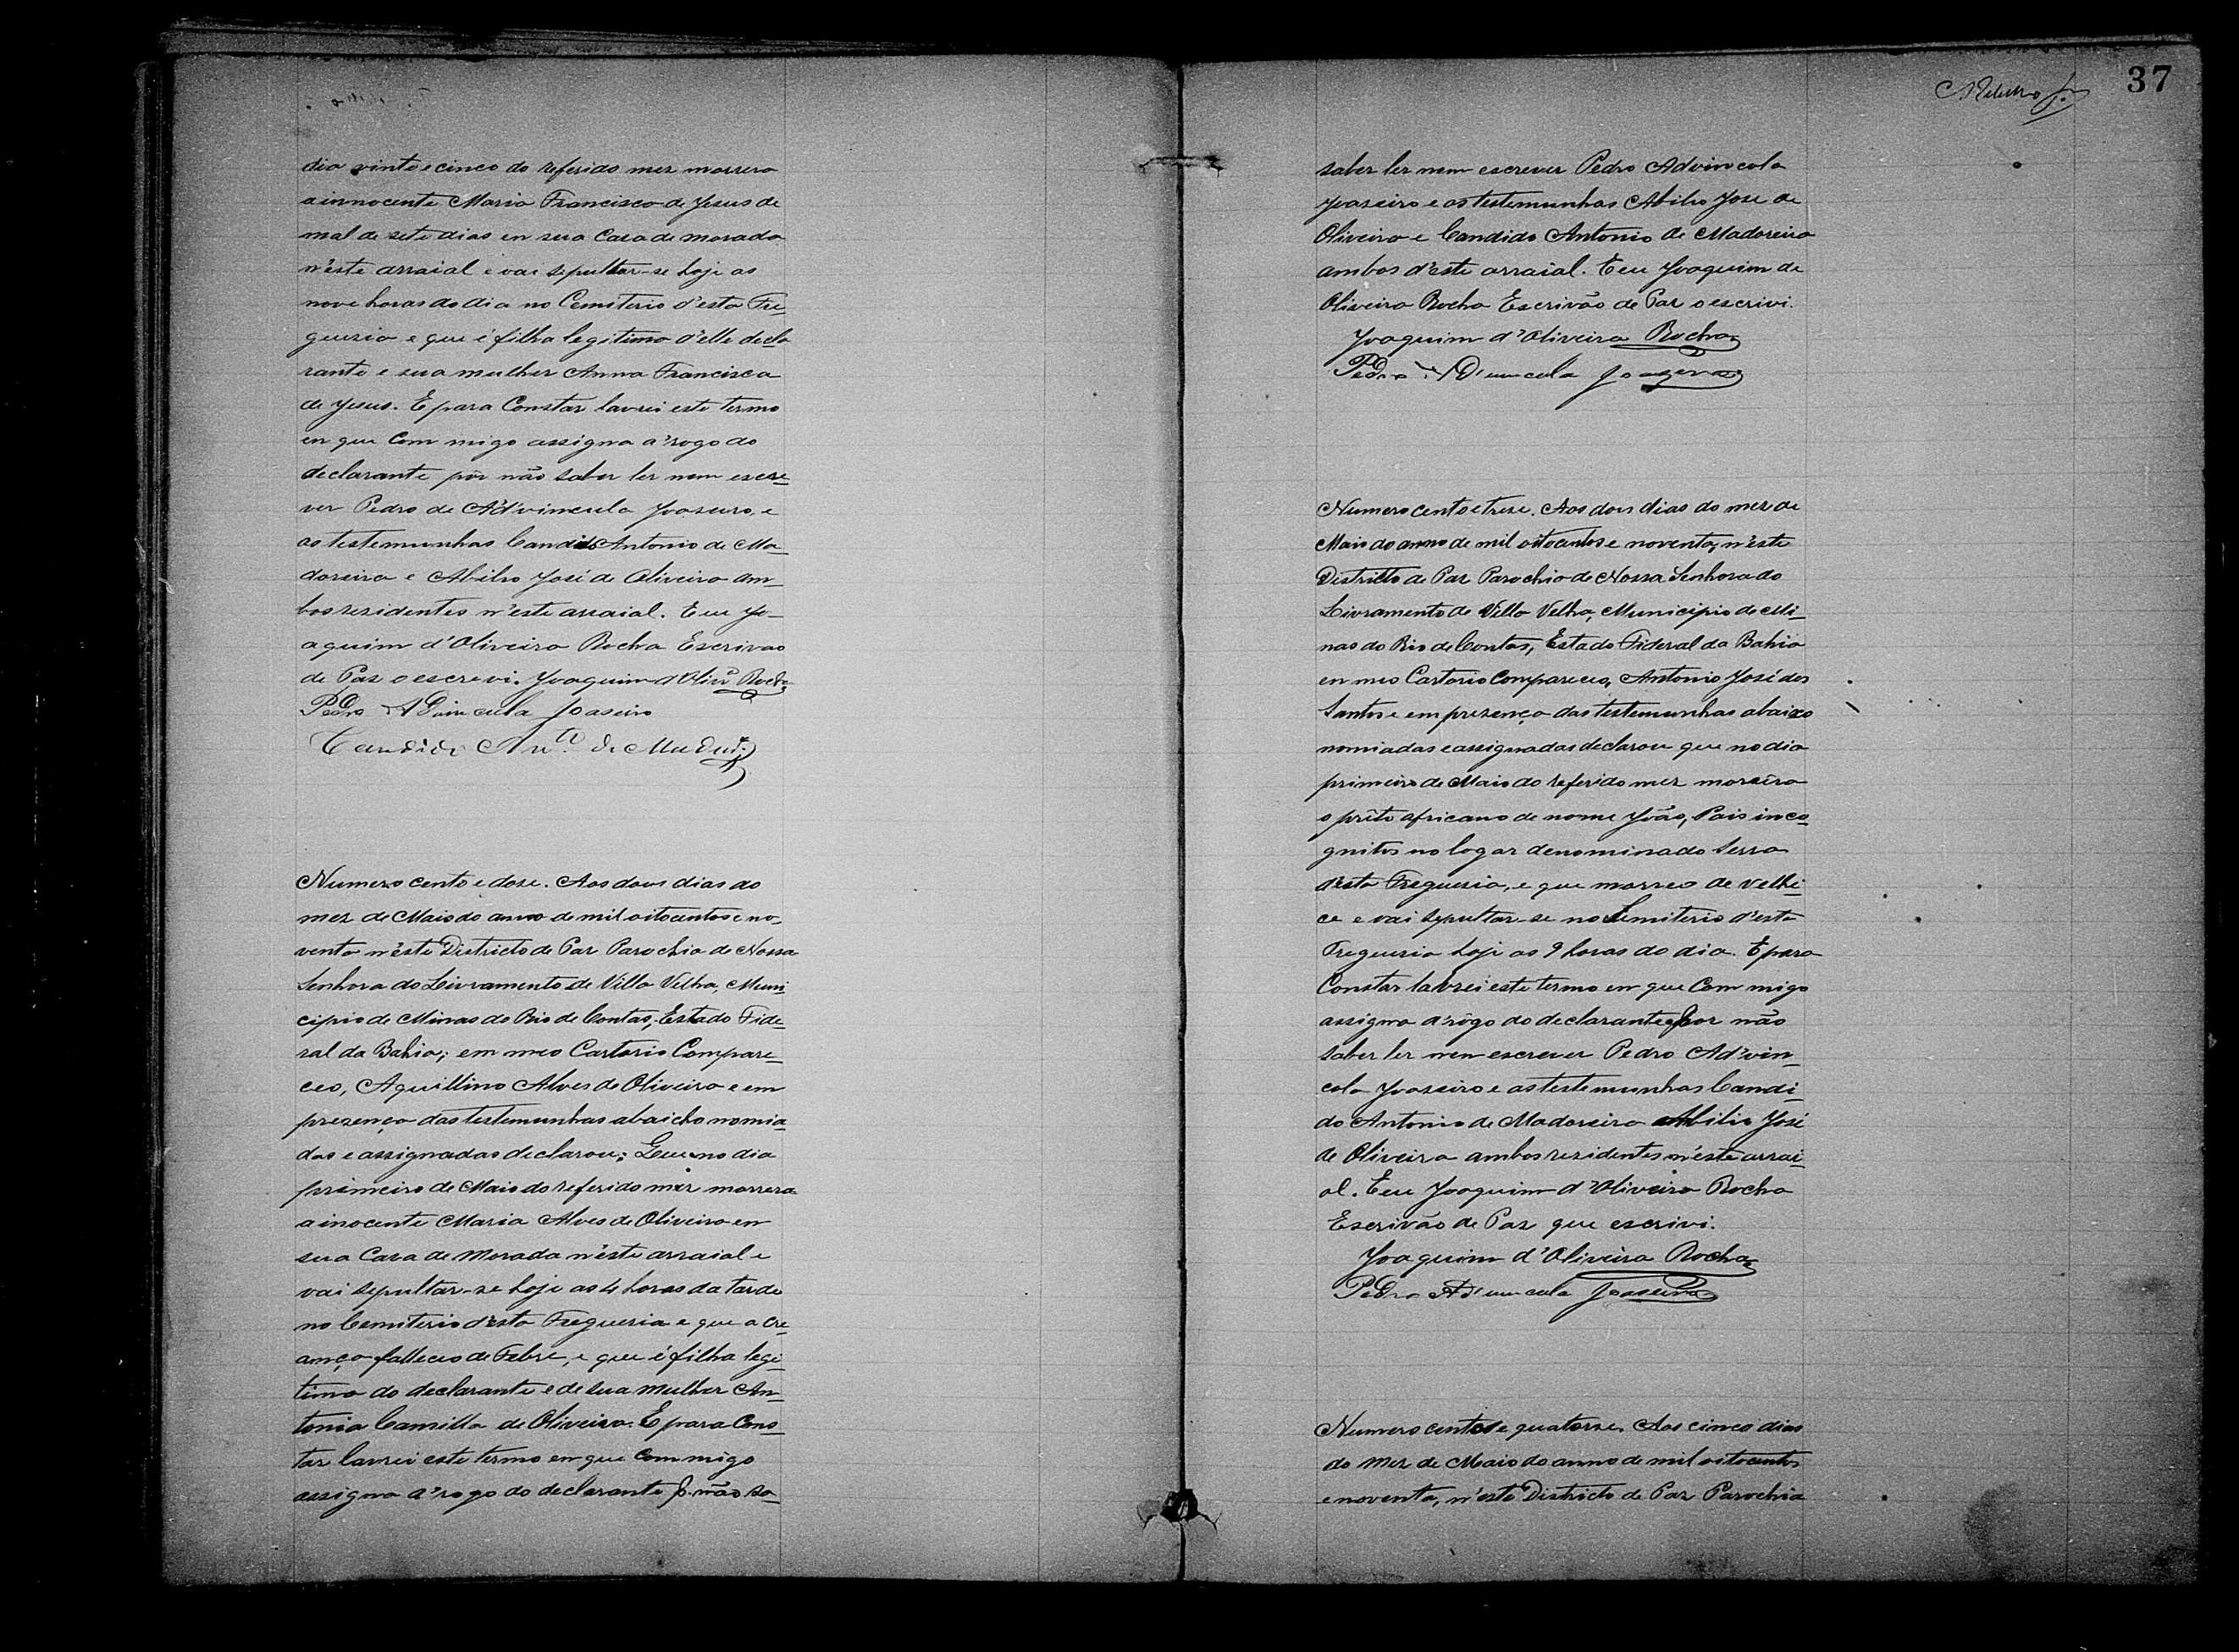 dia vinte e cinco do referido mez morrera
a innocente Maria Francisca de Jesus de
mal de sete dias en sua Casa de morada
n'este arraial e vai sepultar-se hoje as
nove horas do dia no Cemiterio d'esta Fre_
guezia e que é filha legitima d'elle decla
rante e sua mulher Anna Francisca
de Jesus. E para Constar lavrei este termo
en que Com migo assigna a'rogo do
declarante por não saber ler nem escre_
ver Pedro de Ad'vincula Joaseiro, e
as testemunhas Candido Antonio de Ma_
dareira e Abilio José de Oliveira am_
bos rezidentes n'este arraial. E eu Jo_
aquim d'Oliveira Rocha Escrivao
de Paz o escrevi. Joaquim d'Olivrª Rocha
Pedro A Dvincula Joaseiro
Candido Antº de
Numero cento e dose. Aos dous dias do
mez de Maio do anno de mil oitocentos e no_
venta n'este Districto de Paz Parochia de Nossa
Senhora do Livramento de Villa Velha, Muni
cipio de Minas do Rio de Contas, Estado Fide_
ral da Bahia; em meo Cartorio Compare_
ceo, Aquillino Alves de Oliveira e em
prezença das testemunhas abaicho nomia_
das e assignadas declarou; Que no dia
primeiro de Maio do referido mez morrera
a inocente Maria Alves de Oliveira en
sua Casa de Morada n'este arraial e
vai sepultar-se hoje as 4 horas da tarde
no Cemiterio d'esta Freguezia e que a cre_
ança falleceo de Febre, e que é filha legi_
tima do declarante e de sua Mulher An_
tonia Camilla de Oliveira. E para Cons_
tar lavrei este termo en que Com migo
assigna a'rogo do declarante p. não sa_
37
saber ler nem escrever Pedro Advincola
Joaseiro e as testemunhas Abilio Jose de
Oliveira e Candido Antonio de Madareira
ambos d'este arraial. E eu Joaquim de
Oliveira Rocha Escrivão de Paz o escrivi.
Joaquim d'Oliveira Rocha
Pedro A D'uncula Joazero
Numero cento e trese. Aos dous dias do mez de
Maio do anno de mil oitocentos e noventa, n'este
Districto de Paz Parochia de Nossa Senhora do
Livramento de Villa Velha, Municipio de Mi_
nas do Rio de Contas, Estado Fideral da Bahia
en meo Cartorio Compareceo, Antonio José dos
Santos e em prezença das testemunhas abaixo
nomiadas e assignadas declarou que no dia
primeiro de Maio do referido mez morrêra
o prêto africano de nome João, Pais inco_
gnitos no logar denominado Serra
d'esta Freguezia, e que morreo de velhi_
ce e vai sepultar-se no Semiterio d'esta
Freguezia hoje as 9 horas do dia. E para
Constar lavrei este termo en que Com migo
assigna a'rôgo do declarante por não
saber ler nem escrever Pedro Ad'vin_
cola Joaseiro e as testemunhas Candi_
do Antonio de Madareira Abilio José
de Oliveira ambos rezidentes n'este arrai_
al. E eu Joaquim d'Oliveira Rocha
Escrivão de Paz que escrivi.
Joaquim d'Oliveira Rocha
Pedro Ad'uncula Joaseiro
Numero cento e quatorze. Aos cinco dias
do Mez de Maio do anno de mil oitocentos
e noventa, n'este Districto de Paz Parochia